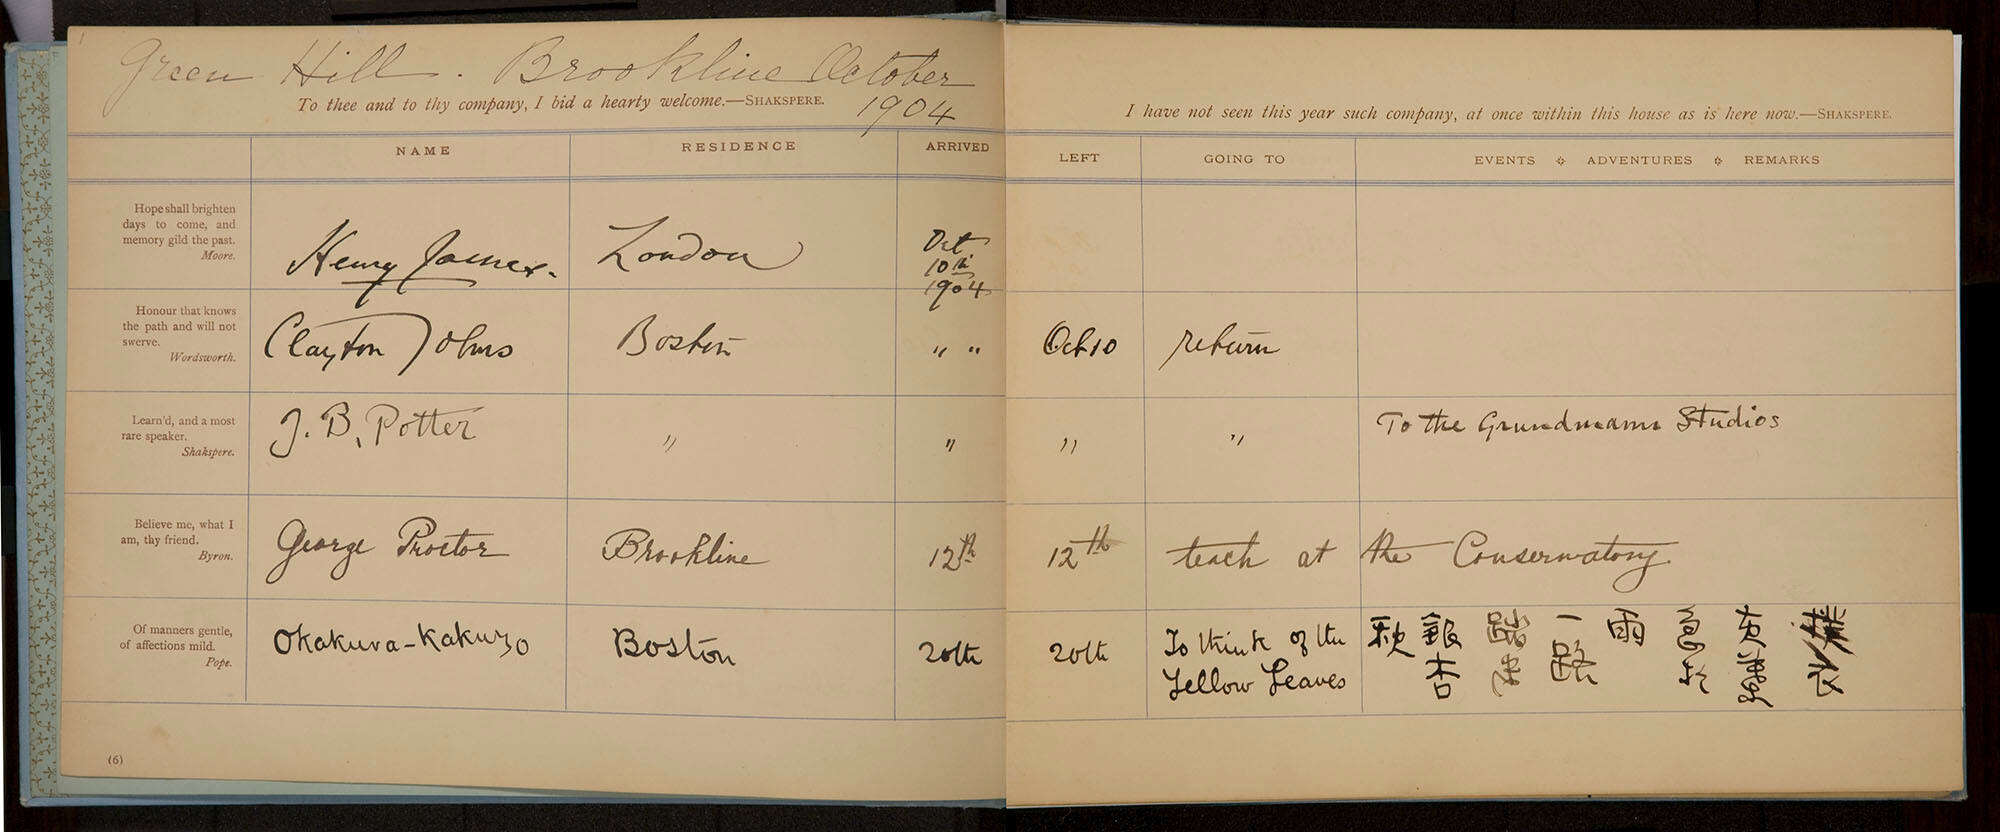 Green Hill. Brookline October
1904
To thee and to thy company, I bid a hearty welcome.—SHAKSPERE.
NAME RESIDENCE ARRIVED
Hope shall brighten
days to come, and
memory gild the past.
Moore.
Henry James. London Oct
10th
1904
Honour that knows
the path and will not
swerve.
Wordsworth.
Clayton Johns Boston " "
Learn'd, and a most
rare speaker.
Shakspere.
J. B. Potter " "
Believe me, what I
am, thy friend.
Byron.
George Proctor Brookline 12th
Of manners gentle,
of affections mild.
Pope.
Okakura-Kakuzo Boston 20th
(6)
I have not seen this year such company, at once within this house as is here now.—SHAKSPERE.
LEFT GOING TO EVENTS ✣ ADVENTURES ✣ REMARKS
Oct 10 return
" " To the Grundmann Studios
12th teach at the Conservatory.
20th To think of the
Yellow Leaves
撲衣
急於
雨
一路
踏
銀杏
秋